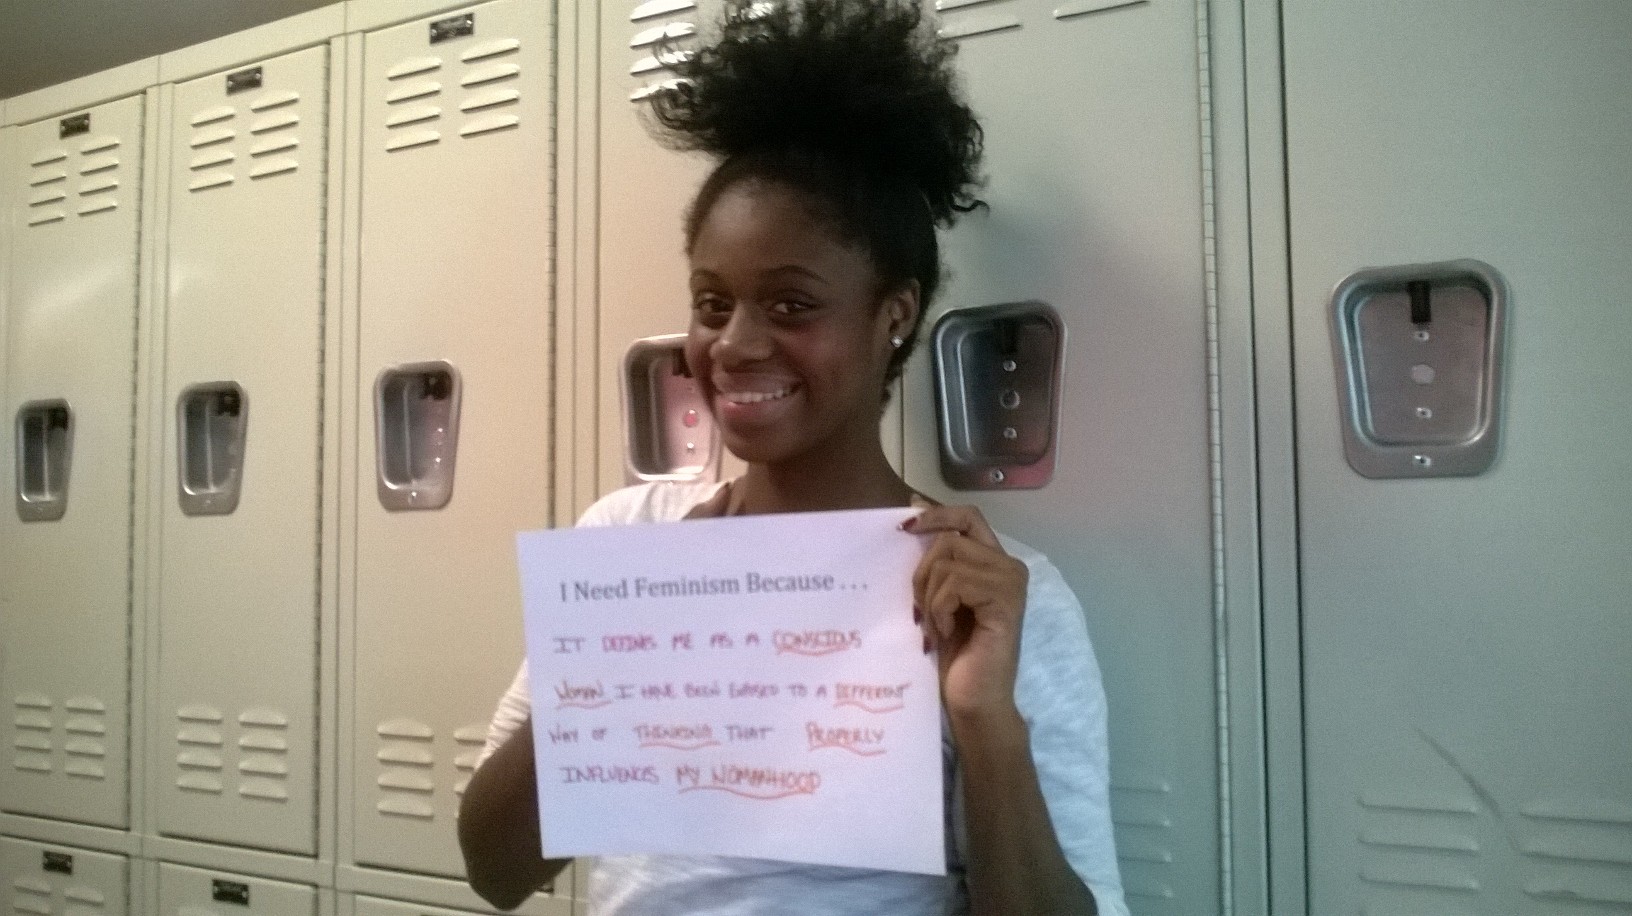 I Need Feminism Because . . .
IT DEFINES ME AS A CONSCIOUS
WOMAN I HAVE BEEN EXPOSED TO A DIFFERENT
WAY OF THINKING THAT PROPERLY
INFLUENCES MY WOMANHOOD